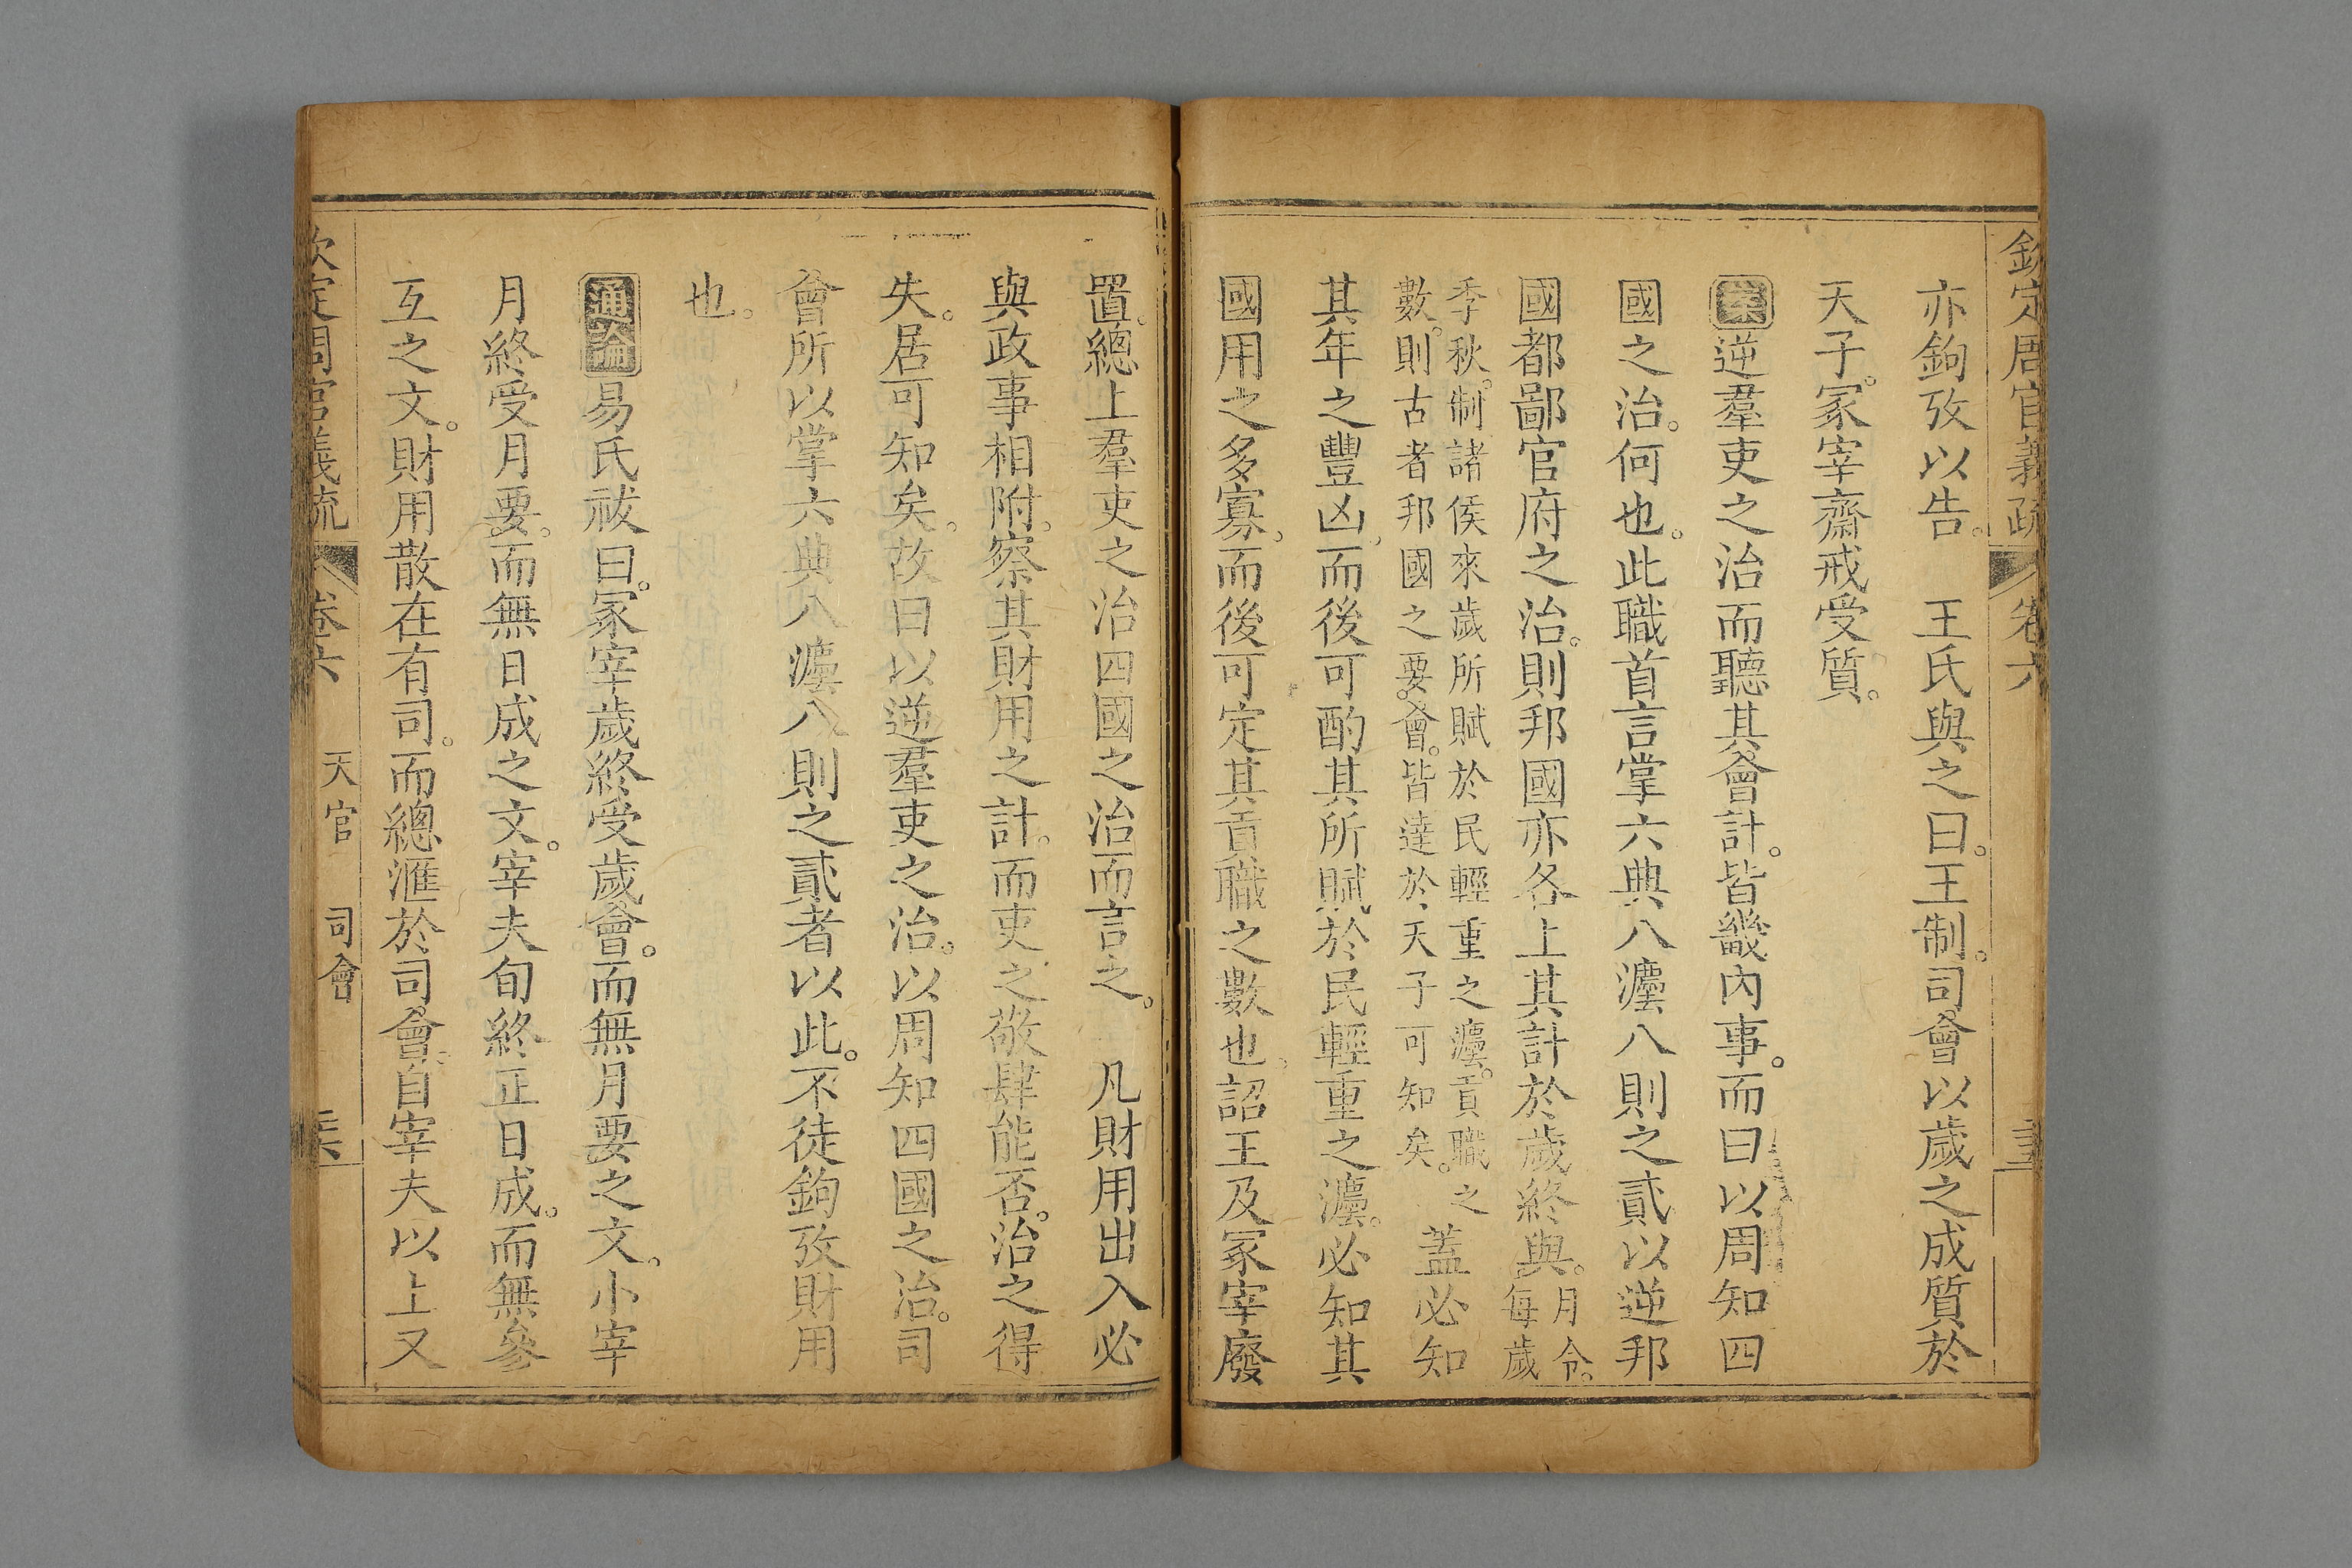 欽定周官義疏 卷六
亦鉤攷以告。 王氏與之曰。王制。司會以歲之成質於
天子。冢宰齋戒受質。
案逆羣吏之治而聽其會計。皆畿內事。而曰以周知四
國之治。何也。此職首言掌六典八灋八則之貳以逆邦
國都鄙官府之治。則邦國亦各上其計於歲終與。月令。
每歲
季秋。制諸侯來歲所賦於民輕重之灋。貢職之
數。則古者邦國之要。會。皆達於天子可知矣。蓋必知
其年之豐凶。而後可酌其所賦於民輕重之灋。必知其
國用之多寡。而後可定其貢職之數也。詔王及冢宰廢
置。總上羣吏之治四國之治而言之。 凡財用出入必
與政事相附。察其財用之計。而吏之敬肆能否。治之得
失。居可知矣。故曰以逆羣吏之治。以周知四國之治。司
會所以掌六典八灋八則之貳者以此。不徒鉤攷財用
也。
通論易氏祓曰。冢宰歲終受歲會。而無月要之文。小宰
月終受月要。而無日成之文。宰夫旬終正日成。而無參
互之文。財用散在有司。而總滙於司會。自宰夫以上又
欽定周官義疏 卷六 天官 司會